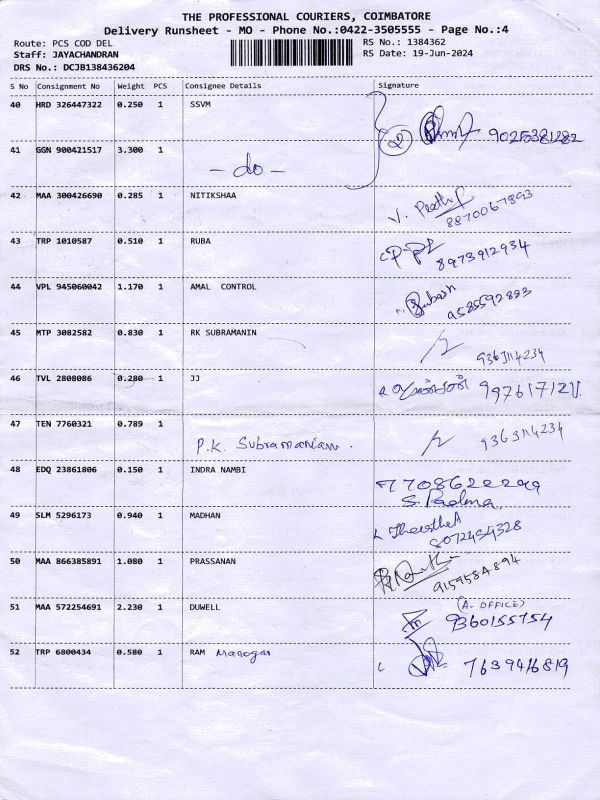 THE PROFESSIONAL COURIERS, COIMBATORE
Delivery Runsheet - MO - Phone No.:0422-3505555 - Page No.:4
Route: PCS COD DEL RS No.: 1384362
Staff: JAYACHANDRAN RS Date: 19-Jun-2024
DRS No.: DCJB138436204
S No Consignment No Weight PCS Consignee Details Signature
40 HRD 326447322 0.250 1 SSVM
2 9025381282
41 GGN 900421517 3.300 1
- do -
42 MAA 300426690 0.285 1 NITIKSHAA
8870067893
43 TRP 1010587 0.510 1 RUBA
8973912934
44 VPL 945060042 1.170 1 AMAL CONTROL
Subash
9585592883
45 MTP 3082582 0.830 1 RK SUBRAMANIN
9363114234
46 TVL 2808086 0.280 1 JJ
47 TEN 7760321 0.789 1
P.K. Subramaniam. 9363114234
48 EDQ 23861806 0.150 1 INDRA NAMBI
7708622299
S. Padma.
49 SLM 5296173 0.940 1 MADHAN
8072454328
50 MAA 866385891 1.080 1 PRASSANAN
9159584894
51 MAA 572254691 2.230 1 DUWELL
(A- OFFICE)
9360155754
52 TRP 6800434 0.580 1 RAM Manogar
7639416819